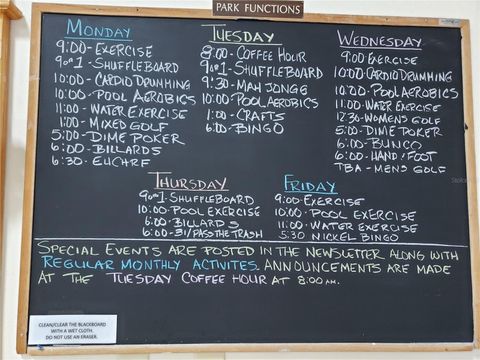 PARK FUNCTIONS
MONDAY
9:00-EXERCISE
9 OR 1-SHUFFLEBOARD
10:00-CARDIO DRUMMING
10:00-POOL AEROBICS
11:00-WATER EXERCISE
1:00-MIXED GOLF
5:00-DIME POKER
6:00-BILLARDS
6:30-EUCHRE
TUESDAY
8:00-COFFEE HOUR
9 OR 1-SHUFFLEBOARD
9:30-MAH JONGG
10:00-POOL AEROBICS
1:00-CRAFTS
6:00-BINGO
WEDNESDAY
9:00 EXERCISE
10:00 CARDIO DRUMMING
10:00-POOL AEROBICS
11:00-WATER EXERCISE
12:30-WOMENS GOLF
5:00-DIME POKER
6:00-BUNCO
6:00-HAND/FOOT
TBA-MENS GOLF
THURSDAY
9 OR 1-SHUFFLEBOARD
10:00-POOL EXERCISE
6:00-BILLARDS
6:00-31/PASS THE TRASH
FRIDAY
9:00-EXERCISE
10:00-POOL EXERCISE
11:00-WATER EXERCISE
5:30 NICKEL BINGO
SPECIAL EVENTS ARE POSTED IN THE NEWSLETTER ALONG WITH
REGULAR MONTHLY ACTIVITES. ANNOUNCEMENTS ARE MADE
AT THE TUESDAY COFFEE HOUR AT 8:00 AM.
CLEAN/CLEAR THE BLACKBOARD
WITH A WET CLOTH.
DO NOT USE AN ERASER.